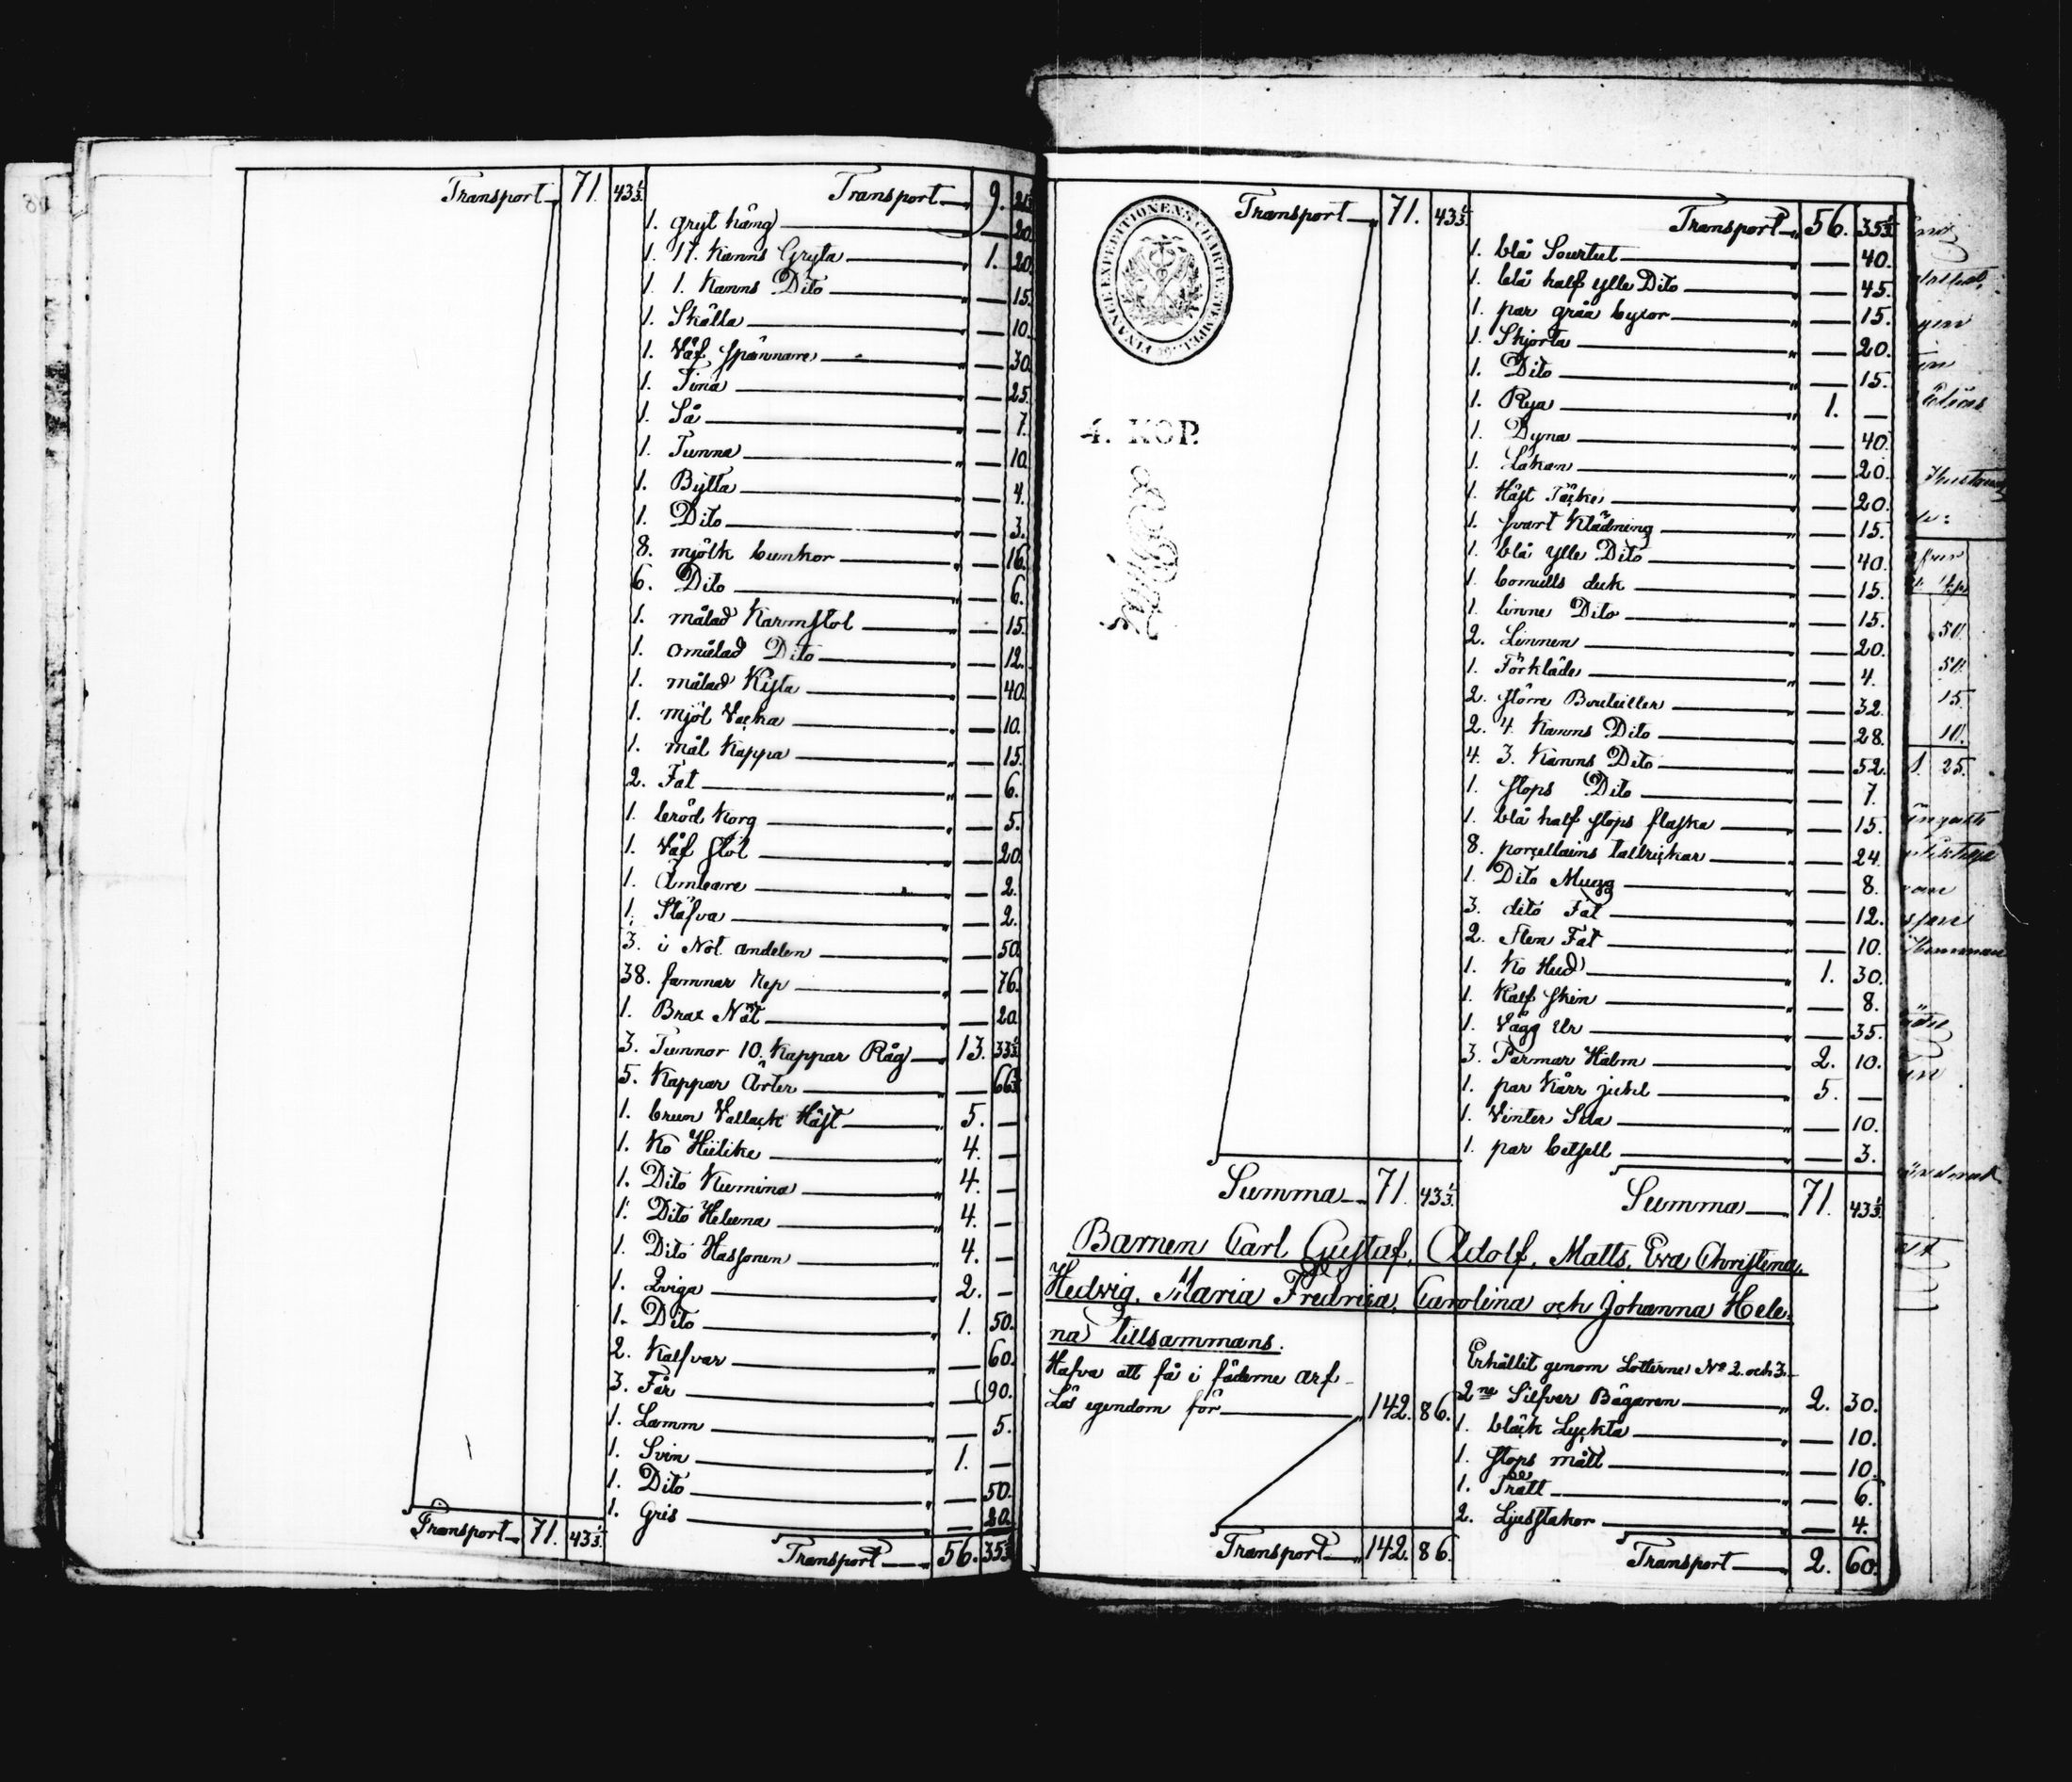 Transport 71. 43⅓.
Transport 9. 21⅓
1. gryt häng — 20.
1. 17. Kanns Gryta 1. 20.
1. 1. Kanns Dito — 15.
1. Skålla — 10.
1. Väf spännare — 30.
1. Tina — 25.
1. Så — 7.
1. Tunna — 10.
1. Bytta — 4.
1. Dito — 3.
8. mjölk bunkor — 16.
6. Dito — 6.
1. målad Karmstol — 15.
1. omålad Dito — 12.
1. målad Kista — 40.
1. Mjöl Vacka — 10.
1. mål Kappa — 15.
2. Fat — 6.
1. bröd Korg — 5.
1. Väf stol — 20.
1. Ämbare — 2.
1. Stäfva — 2.
3. i Not andelen — 50.
38. famnar Rep — 76.
1. Brax Nät — 20.
3. Tunnor 10. Kappar Råg 13. 33⅓.
5. Kappar Ärter — 66⅔
1. brun Vallack Häst 5. —
1. Ko Hülike 4. —
1. Dito Kumina 4. —
1. Dito Heluna 4. —
1. Dito Hassonen 4. —
1. Qviga 2. —
1. Dito 1. 50.
2. Kalfvar — 60.
3. Får — 90.
1. Lamm — 5.
1. Svin 1. —
1. Dito — 50.
1. Gris — 20.
Transport 71. 43⅓.
Transport 56. 35⅓
FINANCE EXPEDITIONENS CHARTÆ STEMPEL
4. KOP.
Transport 71. 43⅓
Transport 56. 35⅓
1. blå Sourtut — 40.
1. blå half ylle Dito — 45.
1. par gråa byxor — 15.
1. Skjorta — 20.
1. Dito — 15.
1. Rya 1. —
1. Dyna — 40.
1. Lakan — 20.
1. Häst Täcke — 20.
1. svart Klädning — 15.
1. blå ylle Dito — 40.
1. bomulls duk — 15.
1. linne Dito — 15.
2. Linnen — 20.
1. Förkläde — 4.
2. större Bouteiller — 32.
2. 4. Kanns Dito — 28.
4. 3. Kanns Dito — 52.
1. stops Dito — 7.
1. blå half stops flaska — 15.
8. porcellains tallrickar — 24.
1. Dito Mugg — 8.
3. dito Fat — 12.
2. Sten Fat — 10.
1. Ko Hud 1. 30.
1. Kalf skin — 8.
1. Vägg Ur — 35.
3. Parmar Halm 2. 10.
1. par Kärr jukel 5. —
1. Vinter Sela — 10.
1. par betsell — 3.
Summa 71. 43⅓.
Summa 71. 43⅓.
Barnen Carl Gustaf, Adolf, Matts, Eva Christina,
Hedvig, Maria Fredrica, Carolina och Johanna Hele-
na tillsammans.
Hafva att få i fäderne arf
Lös egendom för 142. 86.
Erhållit genom Lotterne No 2. och 3.
2ne Silfver Bägaren 2. 30.
1. bläck Lyckta — 10.
1. stops mått — 10.
1. Tratt — 6.
2. Ljusstakor — 4.
Transport 142. 86.
Transport 2. 60.
50.
50.
15.
10.
1. 25.